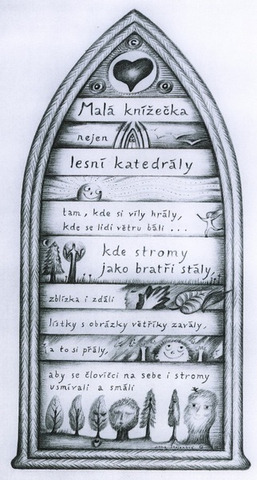 Malá knížečka
nejen
lesní katedrály
tam, kde si víly hrály,
kde se lidi větru báli ...
kde stromy
jako bratři stály,
zblízka i zdáli
lístky s obrázky větříky zavály,
a to si přály,
aby se človíčci na sebe i stromy
usmívali a smáli